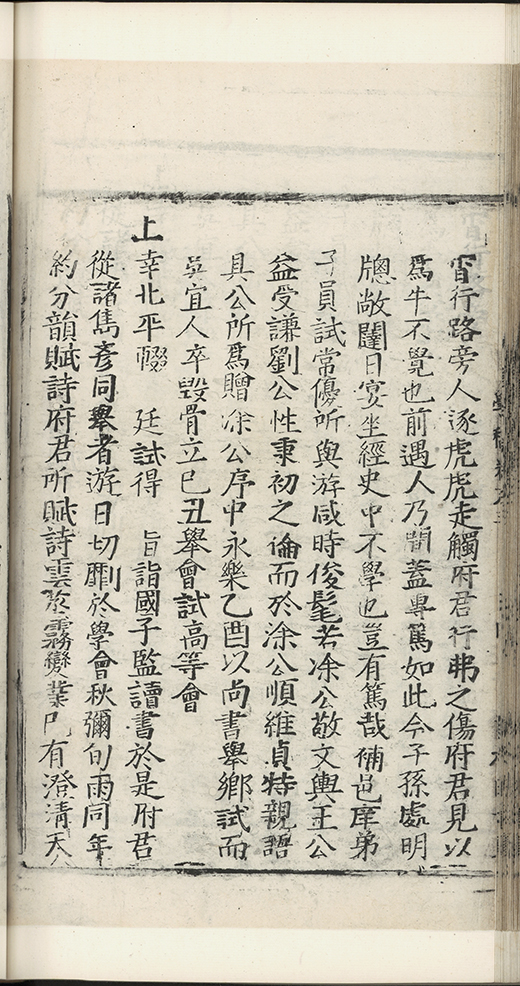 宵行路旁人逐虎虎走觸府君行弗之傷府君見以
為牛不覺也前遇人乃聞蓋專篤如此今子孫處明
牕敞闥日宴坐經史中不學也豈有篤哉補邑庠弟
子員試常優所與游咸時俊髦若凃公敬文輿王公
益受謙劉公性秉初之倫而於凃公順維貞特親語
具公所為贈凃公序中永樂乙酉以尚書舉鄉試而
吳宜人卒毀骨立己丑舉會試高等會
上幸北平輟 廷試得 旨詣國子監讀書於是府君
從諸雋彥同舉者游日切劘於學會秋彌旬雨同年
約分韻賦詩府君所賦詩雲蒸霧變葉凡有澄清天